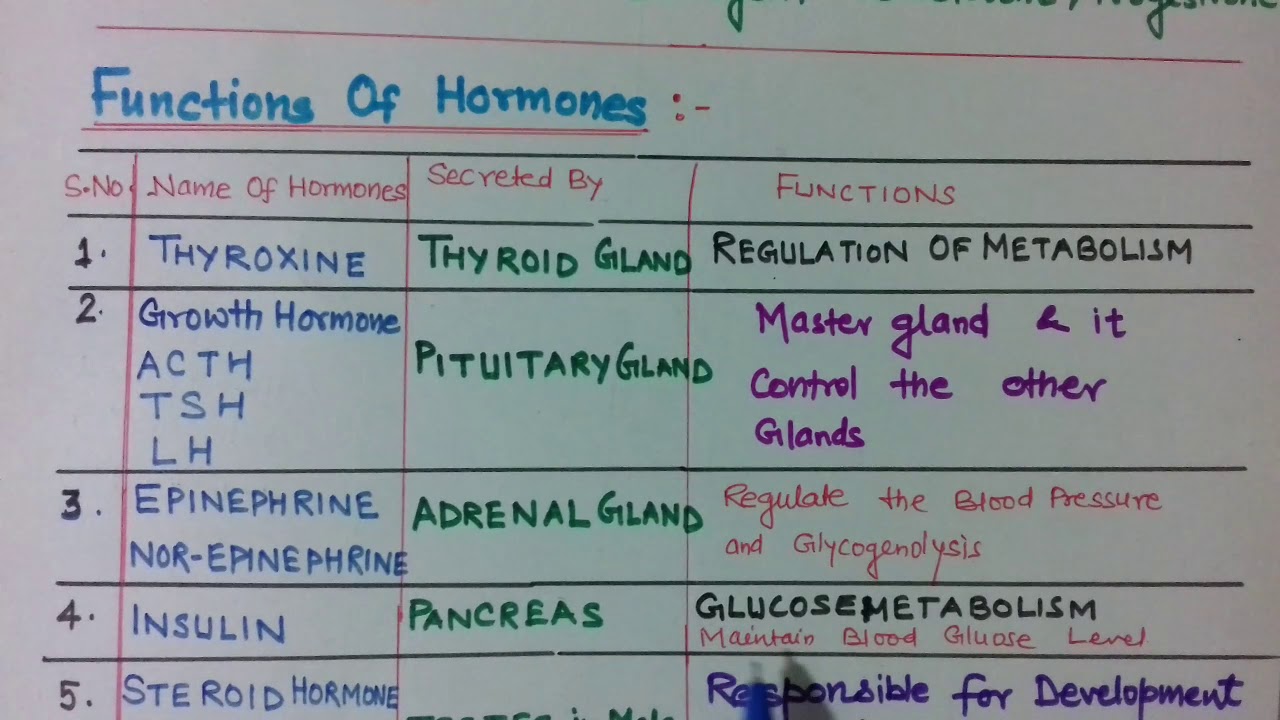 Functions Of Hormones :-
S.No. Name Of Hormones Secreted By FUNCTIONS
1. THYROXINE THYROID GLAND REGULATION OF METABOLISM
2. Growth Hormone
ACTH
TSH
LH
PITUITARY GLAND
Master gland & it
Control the other
Glands
3. EPINEPHRINE
NOR-EPINEPHRINE
ADRENAL GLAND
Regulate the Blood Pressure
and Glycogenolysis
4. INSULIN PANCREAS
GLUCOSE METABOLISM
Maintain Blood Gluose Level
5. STEROID HORMONE
Responsible for Development